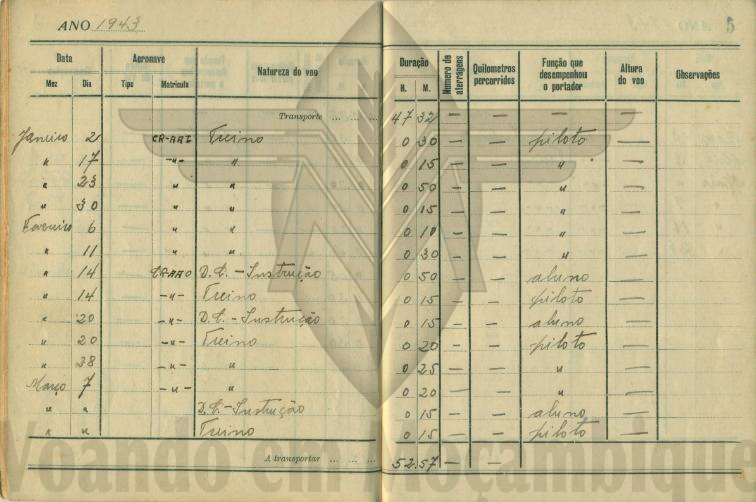 ANO 1943 5
Data Aeronave Natureza do voo Duração Número de aterragens Quilometros percorridos Função que desempenhou o portador Altura do voo Observações
Mez Dia Tipo Matrícula H. M.
Transporte ... ... ... 47 32 — — — —
Janeiro 2 CR-AAI Treino 0 30 — — piloto —
" 17 -"- " 0 15 — — " —
" 23 " " 0 50 — — " —
" 30 " " 0 15 — — " —
Fevereiro 6 " " 0 10 — — " —
" 11 " " 0 30 — — " —
" 14 CR-AAO D.C.-Instrução 0 50 — — aluno —
" 14 -"- Treino 0 15 — — piloto —
" 20 -"- D.C.-Instrução 0 15 — — aluno —
" 20 -"- Treino 0 20 — — piloto —
" 38 -"- " 0 25 — — " —
Março 7 -"- " 0 20 — — " —
" " D.C.-Instrução 0 15 — — aluno —
" " Treino 0 15 — — piloto —
A transportar ... ... ... 52.57 — —
Voando em Moçambique